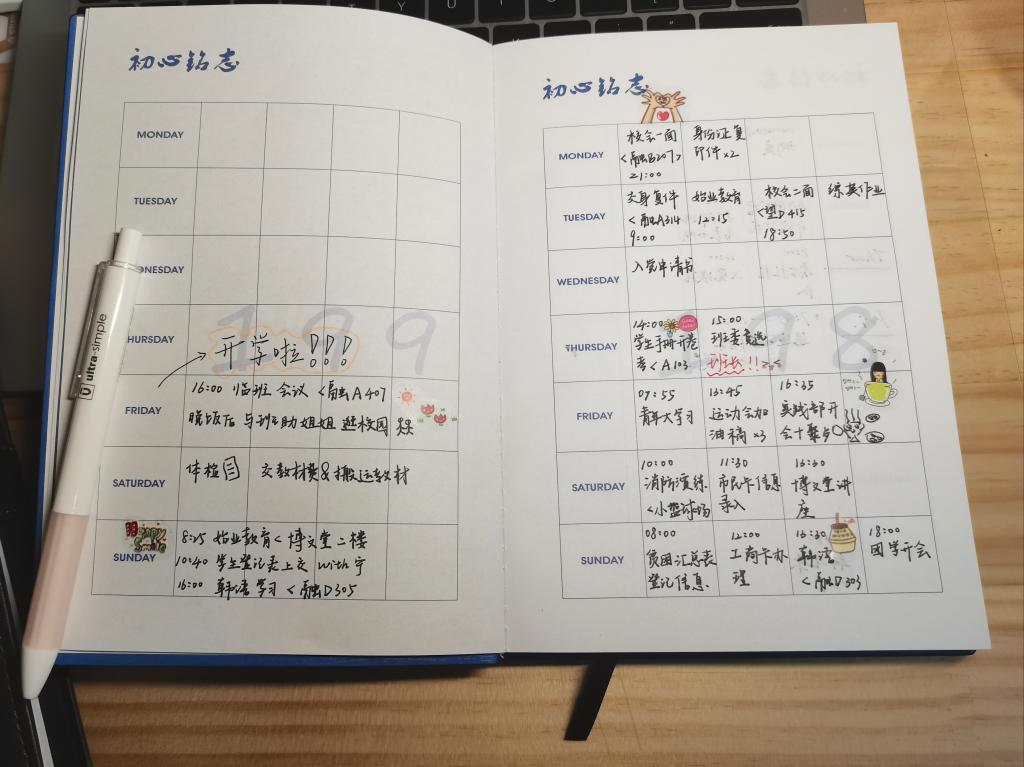 初心铭志
MONDAY
TUESDAY
DNESDAY
HURSDAY
199
开学啦!!!
FRIDAY
16:00 临班会议 <融A407
晚饭后 与班助姐姐 逛校园
SATURDAY
体检 交教材费&搬运教材
SUNDAY
8:25 始业教育<博文堂二楼
10:40 学生登记表上交 with宁
16:00 韩语学习 <融D305
U ultra-simple
初心铭志
MONDAY
校会一面
<融B207>
21:00
身份证复
印件 x2
TUESDAY
交身复件
<融A314
9:00
始业教育
12:15
校会二面
<望D415
18:50
练英作业
WEDNESDAY
入党申请书
THURSDAY
14:00
学生手册开卷
考<A103
15:00
班委竞选
班长!!
98
FRIDAY
07:55
青年大学习
16:45
运动会加
油稿 x3
16:35
实践部开
会+聚
SATURDAY
10:00
消防演练
<小篮球场
11:30
市民卡信息
录入
16:30
博文堂讲
座
SUNDAY
08:00
贫困汇总表
登记信息
12:00
工商卡办
理
16:30
韩语
<融D303
18:00
国学开会